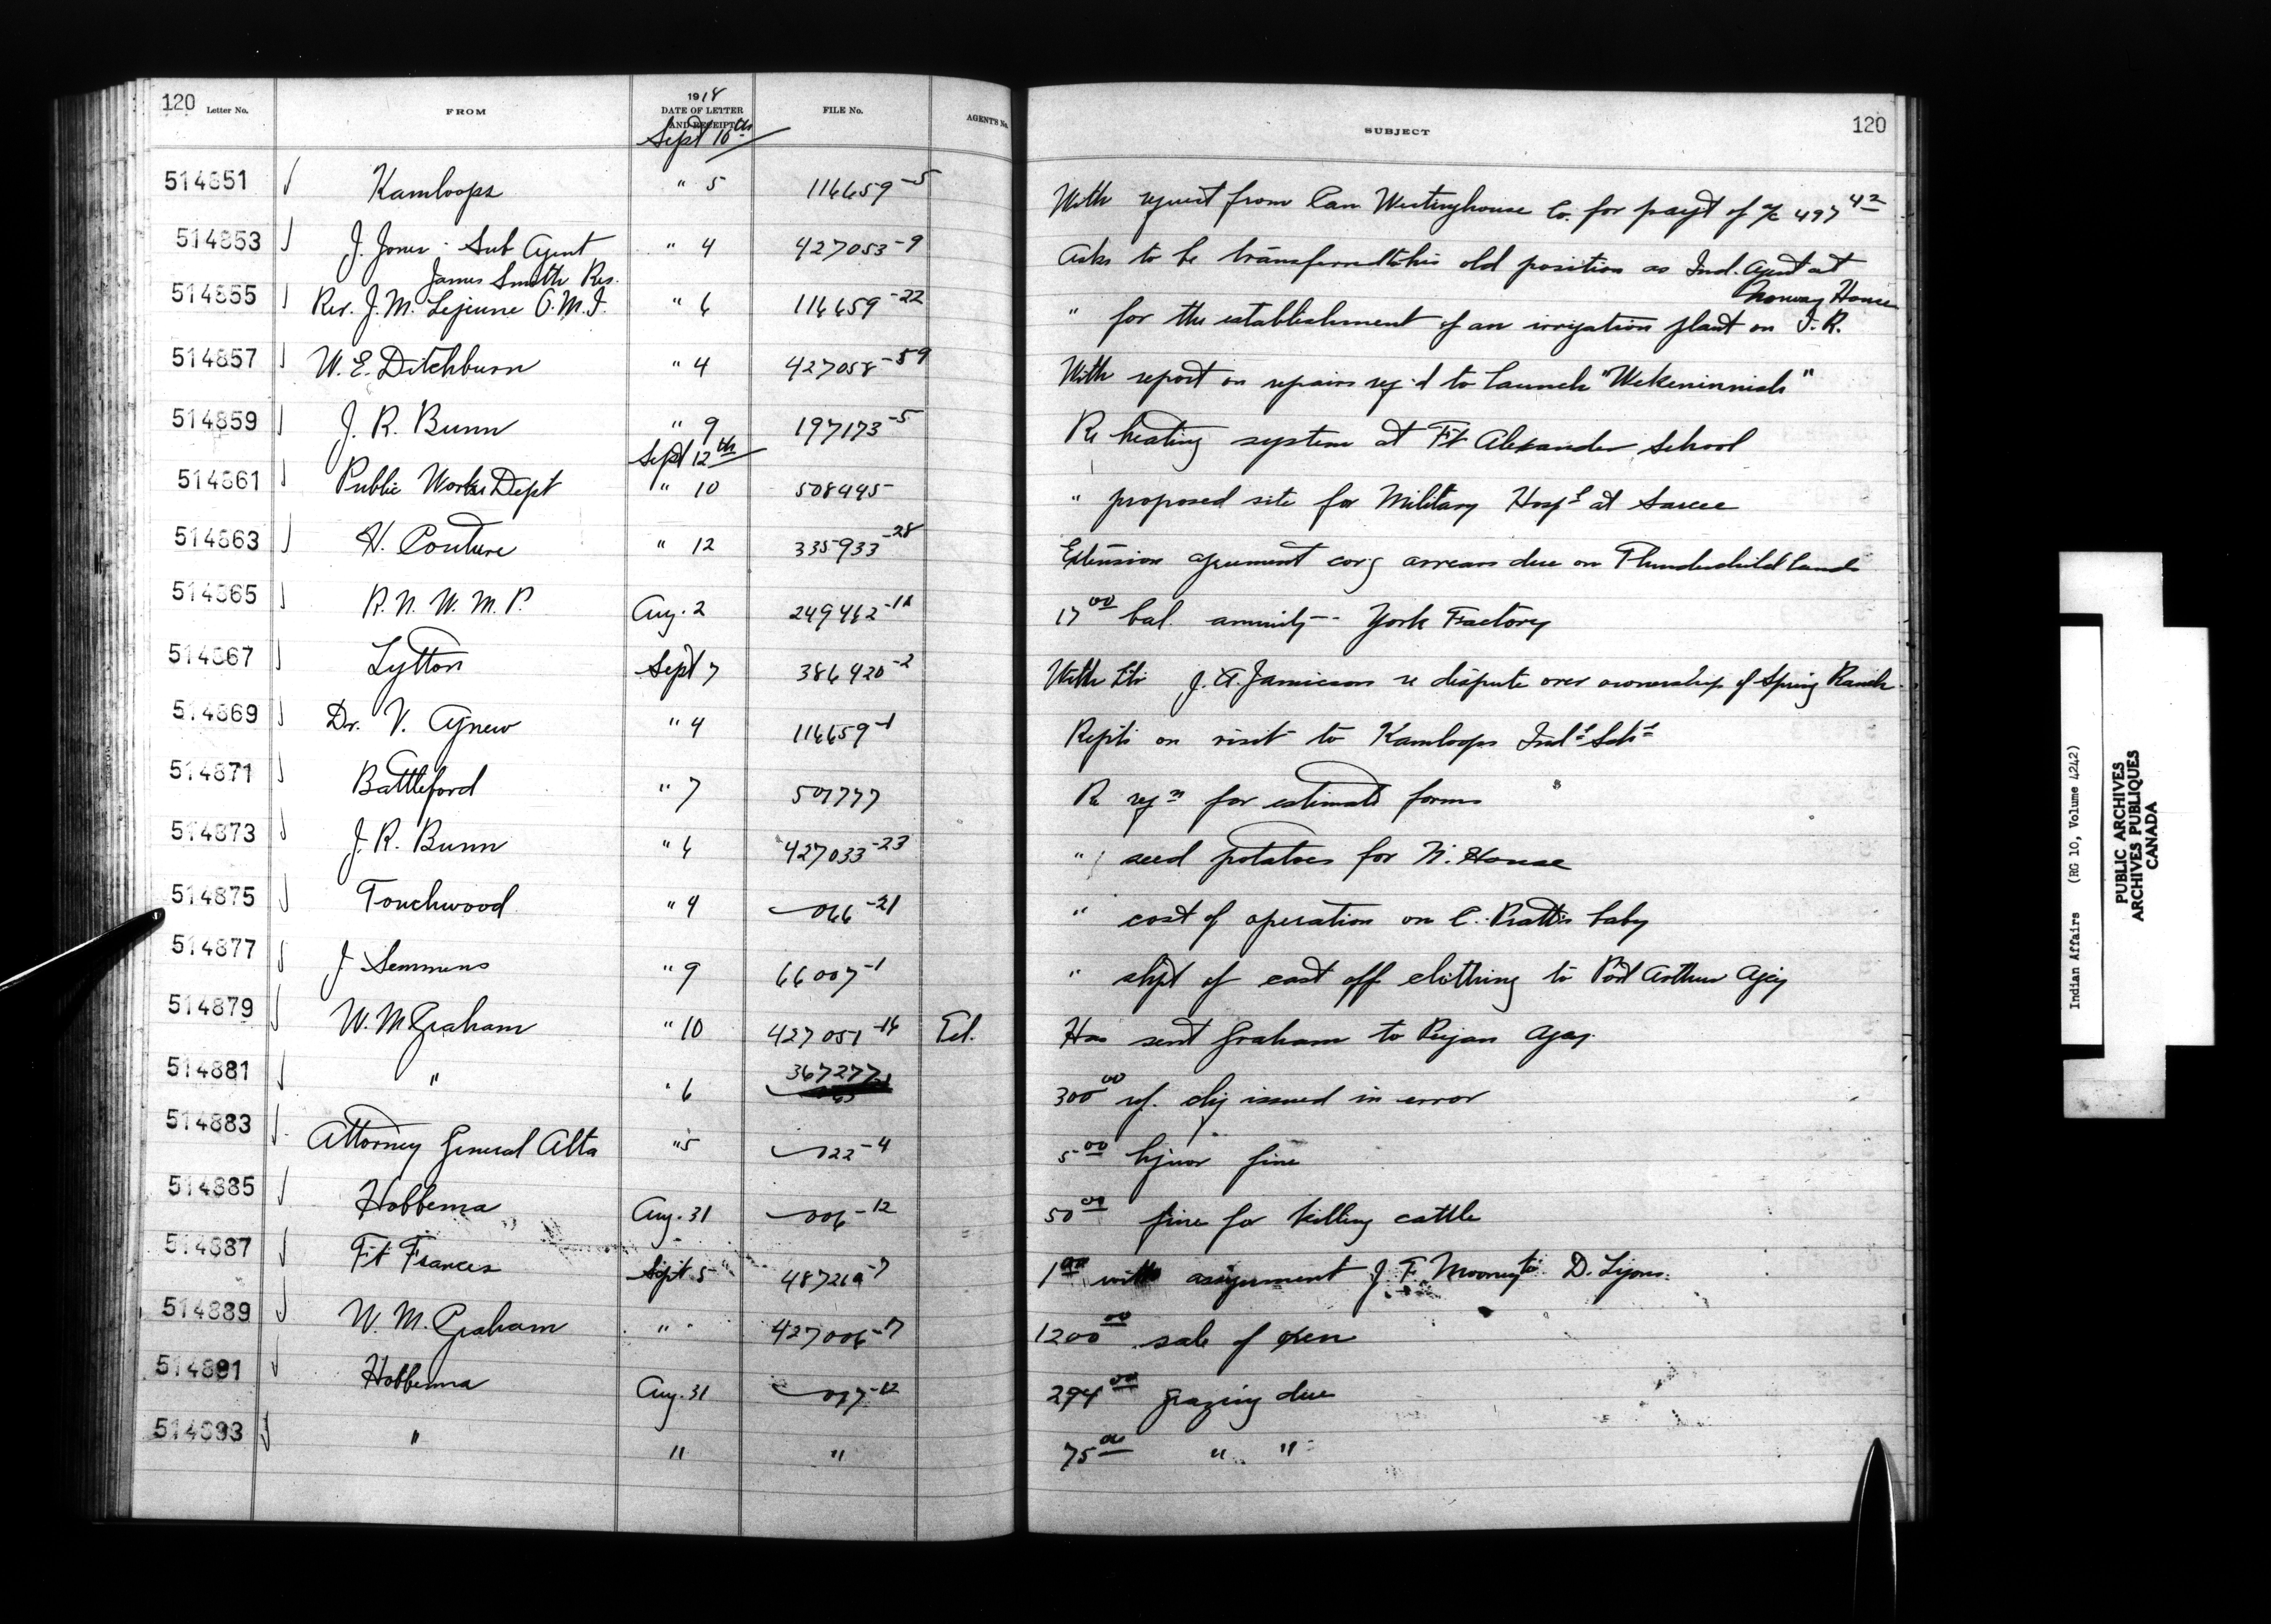 120 Letter No. FROM 1918 DATE OF LETTER AND RECEIPT FILE No. AGENT'S No. SUBJECT 120
Sept 10th
514851 Kamloops " 5 116659-5 With request from Can Westinghouse Co. for payt of a/c 497 42
514853 J. Jones - Sub Agent " 4 427053-9 Asks to be transferred to his old position as Ind. Agent at
James Smith Res. Norway House
514855 Rev. J. M. Lejeune O.M.I. " 6 116659-22 " for the establishment of an irrigation plant on I.R.
514857 W. E. Ditchburn " 4 427058-59 With report on repairs reqd to launch "Wekeninnish"
514859 J. R. Bunn " 9 197173-5 Re heating system at Ft Alexander School
Sept 12th
514861 Public Works Dept " 10 508445 " proposed site for Military Hospl at Sarcee
514863 H. Couture " 12 335933-28 Extension agreement covg arrears due on Thunderchild lands
514865 R. N. W. M. P. Aug. 2 249462 17 00 bal. annuity -- York Factory
514867 Lytton Sept 7 386420-2 With ltr J. A. Jamieson re dispute over ownership of Spring Ranch
514869 Dr. V. Agnew " 4 116659-1 Repts on visit to Kamloops Indl Schl
514871 Battleford " 7 507777 Re reqn for estimate forms
514873 J. R. Bunn " 6 427033-23 " seed potatoes for N. House
514875 Touchwood " 4 066-21 " cost of operation on C. Pratt's baby
514877 J Semmens " 9 66007-1 " shpt of cast off clothing to Port Arthur Agcy
514879 W. M Graham " 10 427051-16 Ed. Has sent Graham to Peigan Agcy.
514881 " " 6 367277 300 00 ref. chq issued in error
514883 Attorney General Alta " 5 022-4 5 00 liquor fine
514885 Hobbema Aug. 31 006-12 50 00 fine for killing cattle
514887 Ft Frances Sept 5 487219-7 1 00 with assignment J. F. Mooney to D. Lyons.
514889 W. M. Graham " " 427006-17 1200 00 sale of oxen
514891 Hobbema Aug. 31 017-12 294 00 grazing due
514893 " " " 75 00 " "
Indian Affairs (RG 10, Volume 4242)
PUBLIC ARCHIVES
ARCHIVES PUBLIQUES
CANADA